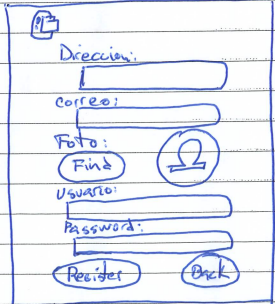 Direccion:
correo:
Foto:
Find
Usuario:
Password:
Register
Back